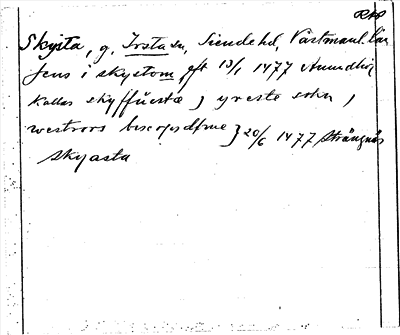 RAP
Skysta, g. Irsta sn, Siende hd, Västmanl. län
jens i skystom, aft 13/1 1477 Anundhög
kallas skyffuestæ, yreste sokn,
westroos biscopsdøme, 20/6 1477 Strängnäs
skyasta